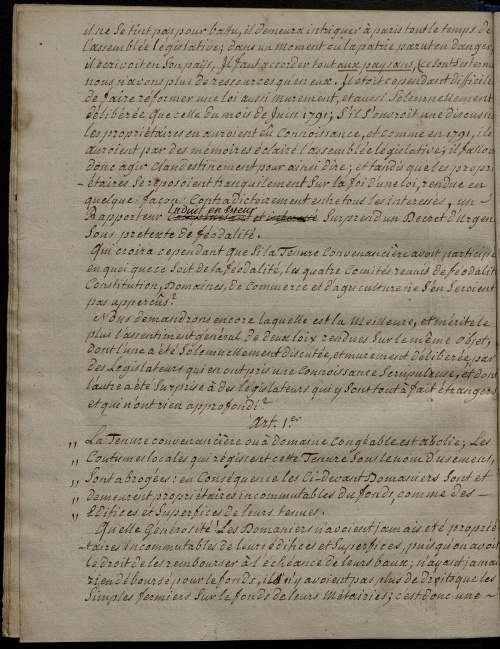 il ne se tint pas pour battu, il demeura intriguer à paris tout le temps de
l'assemblée législative; dans un moment où la patrie parut en danger,
il écrivoit en son païs, Il faut accorder tout aux paysans, ce sont
nous n'avons plus de ressources qu'en eux. Il étoit cependant difficile
de faire réformer une loi aussi murement, et aussi Solemnellement
déliberée que celle du mois de Juin 1791; S'il s'ouvroit une discussi
les propriétaires en auroient eû Connoissance, et comme en 1791, ils
auroient par des mémoires éclairé l'assemblée législative; il fallou
donc agir clandestinement pour ainsi dire; et tandis que les propri
-étaires Se reposoient tranquilement Sur la foi d'une loi, rendue en
quelque façon Contradictoirement entre tous les interessés, un -
induit en Erreur
Rapporteur et Surprend un Decret d'Urgen
Sous prétexte de féodalité.
Qui croira cependant que Si la Tenure Convenancière avoit participé
en quoi que ce Soit de la féodalité, les quatre Comités reunis de féodalité
Constitution, Domaines, de Commerce et d'agriculture ne S'en Seroient
pas apperçûs?
Nous demandrons encore laquelle est la Meilleure, et mérite le
plus l'assentiment général de deux loix rendues Sur le même objet,
dont l'une a été Solemnellement discutée, et murement déliberée par
des Législateurs qui en ont pris une Connoissance Scrupuleuse, et dont
l'autre a été Surprise à des législateurs qui y Sont tout à fait étrangers
et qui n'ont rien approfondi?
Art. 1.er
„ La Tenure convenancière ou à domaine Congéable est abolie; Les
„ Coutumes locales qui régissent cette Tenure Sous le nom d'usemens,
„ Sont abrogées: en Conséquence les Ci-Devant Domaniers Sont et
„ demeurent propriétaires incommutables du fonds, comme des -
„ Edifices et Superfices de leurs tenues.
Quelle Générosité! Les Domaniers n'avoient Jamais été proprié
-taires Incommutables de leurs édifices et Superfices, puis qu'on avoit
le droit de les rembourser à l'échéance de leurs baux; n'ayant jamais
rien déboursé pour le fonds, ils n'y avoient pas plus de droits que les
Simples fermiers Sur le fonds de leurs Métairies; c'est donc une -